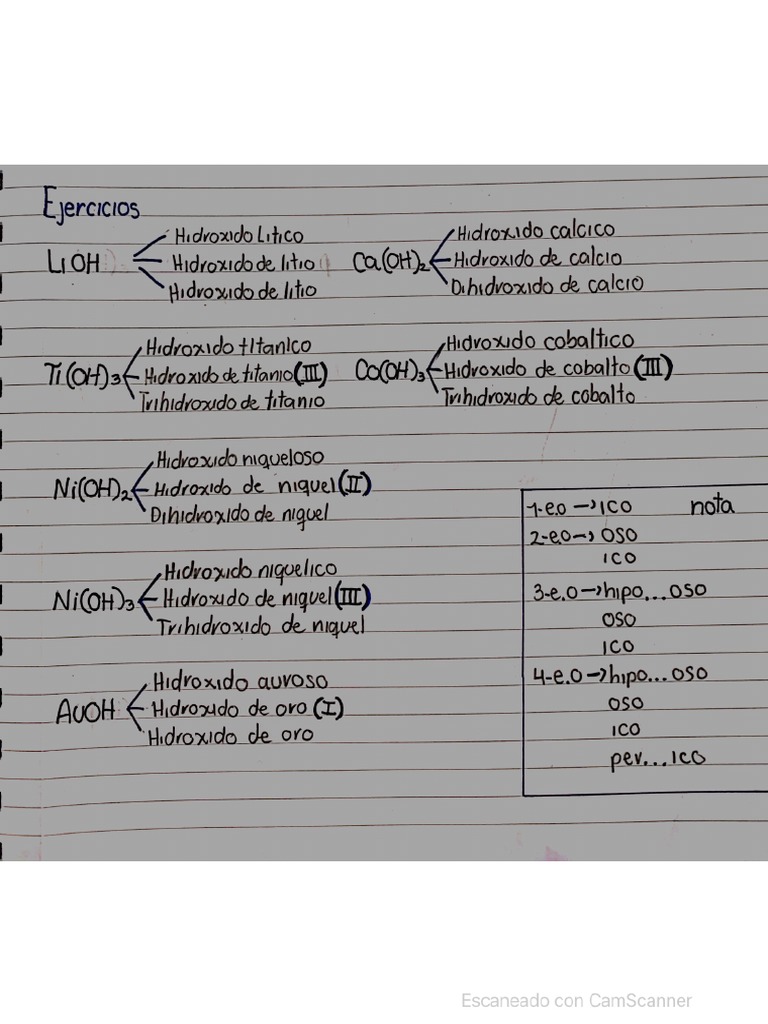 Ejercicios
LiOH
Hidroxido Litico
Hidroxido de litio
Hidroxido de litio
Ca(OH)₂
Hidroxido calcico
Hidroxido de calcio
Dihidroxido de calcio
Ti(OH)₃
Hidroxido titanico
Hidroxido de titanio (III)
Trihidroxido de titanio
Co(OH)₃
Hidroxido cobaltico
Hidroxido de cobalto (III)
Trihidroxido de cobalto
Ni(OH)₂
Hidroxido niqueloso
Hidroxido de niquel (II)
Dihidroxido de niquel
Ni(OH)₃
Hidroxido niquelico
Hidroxido de niquel (III)
Trihidroxido de niquel
AuOH
Hidroxido auroso
Hidroxido de oro (I)
Hidroxido de oro
1-e.o → ico nota
2-e.o → oso
ico
3-e.o → hipo...oso
oso
ico
4-e.o → hipo...oso
oso
ico
per...ico
Escaneado con CamScanner